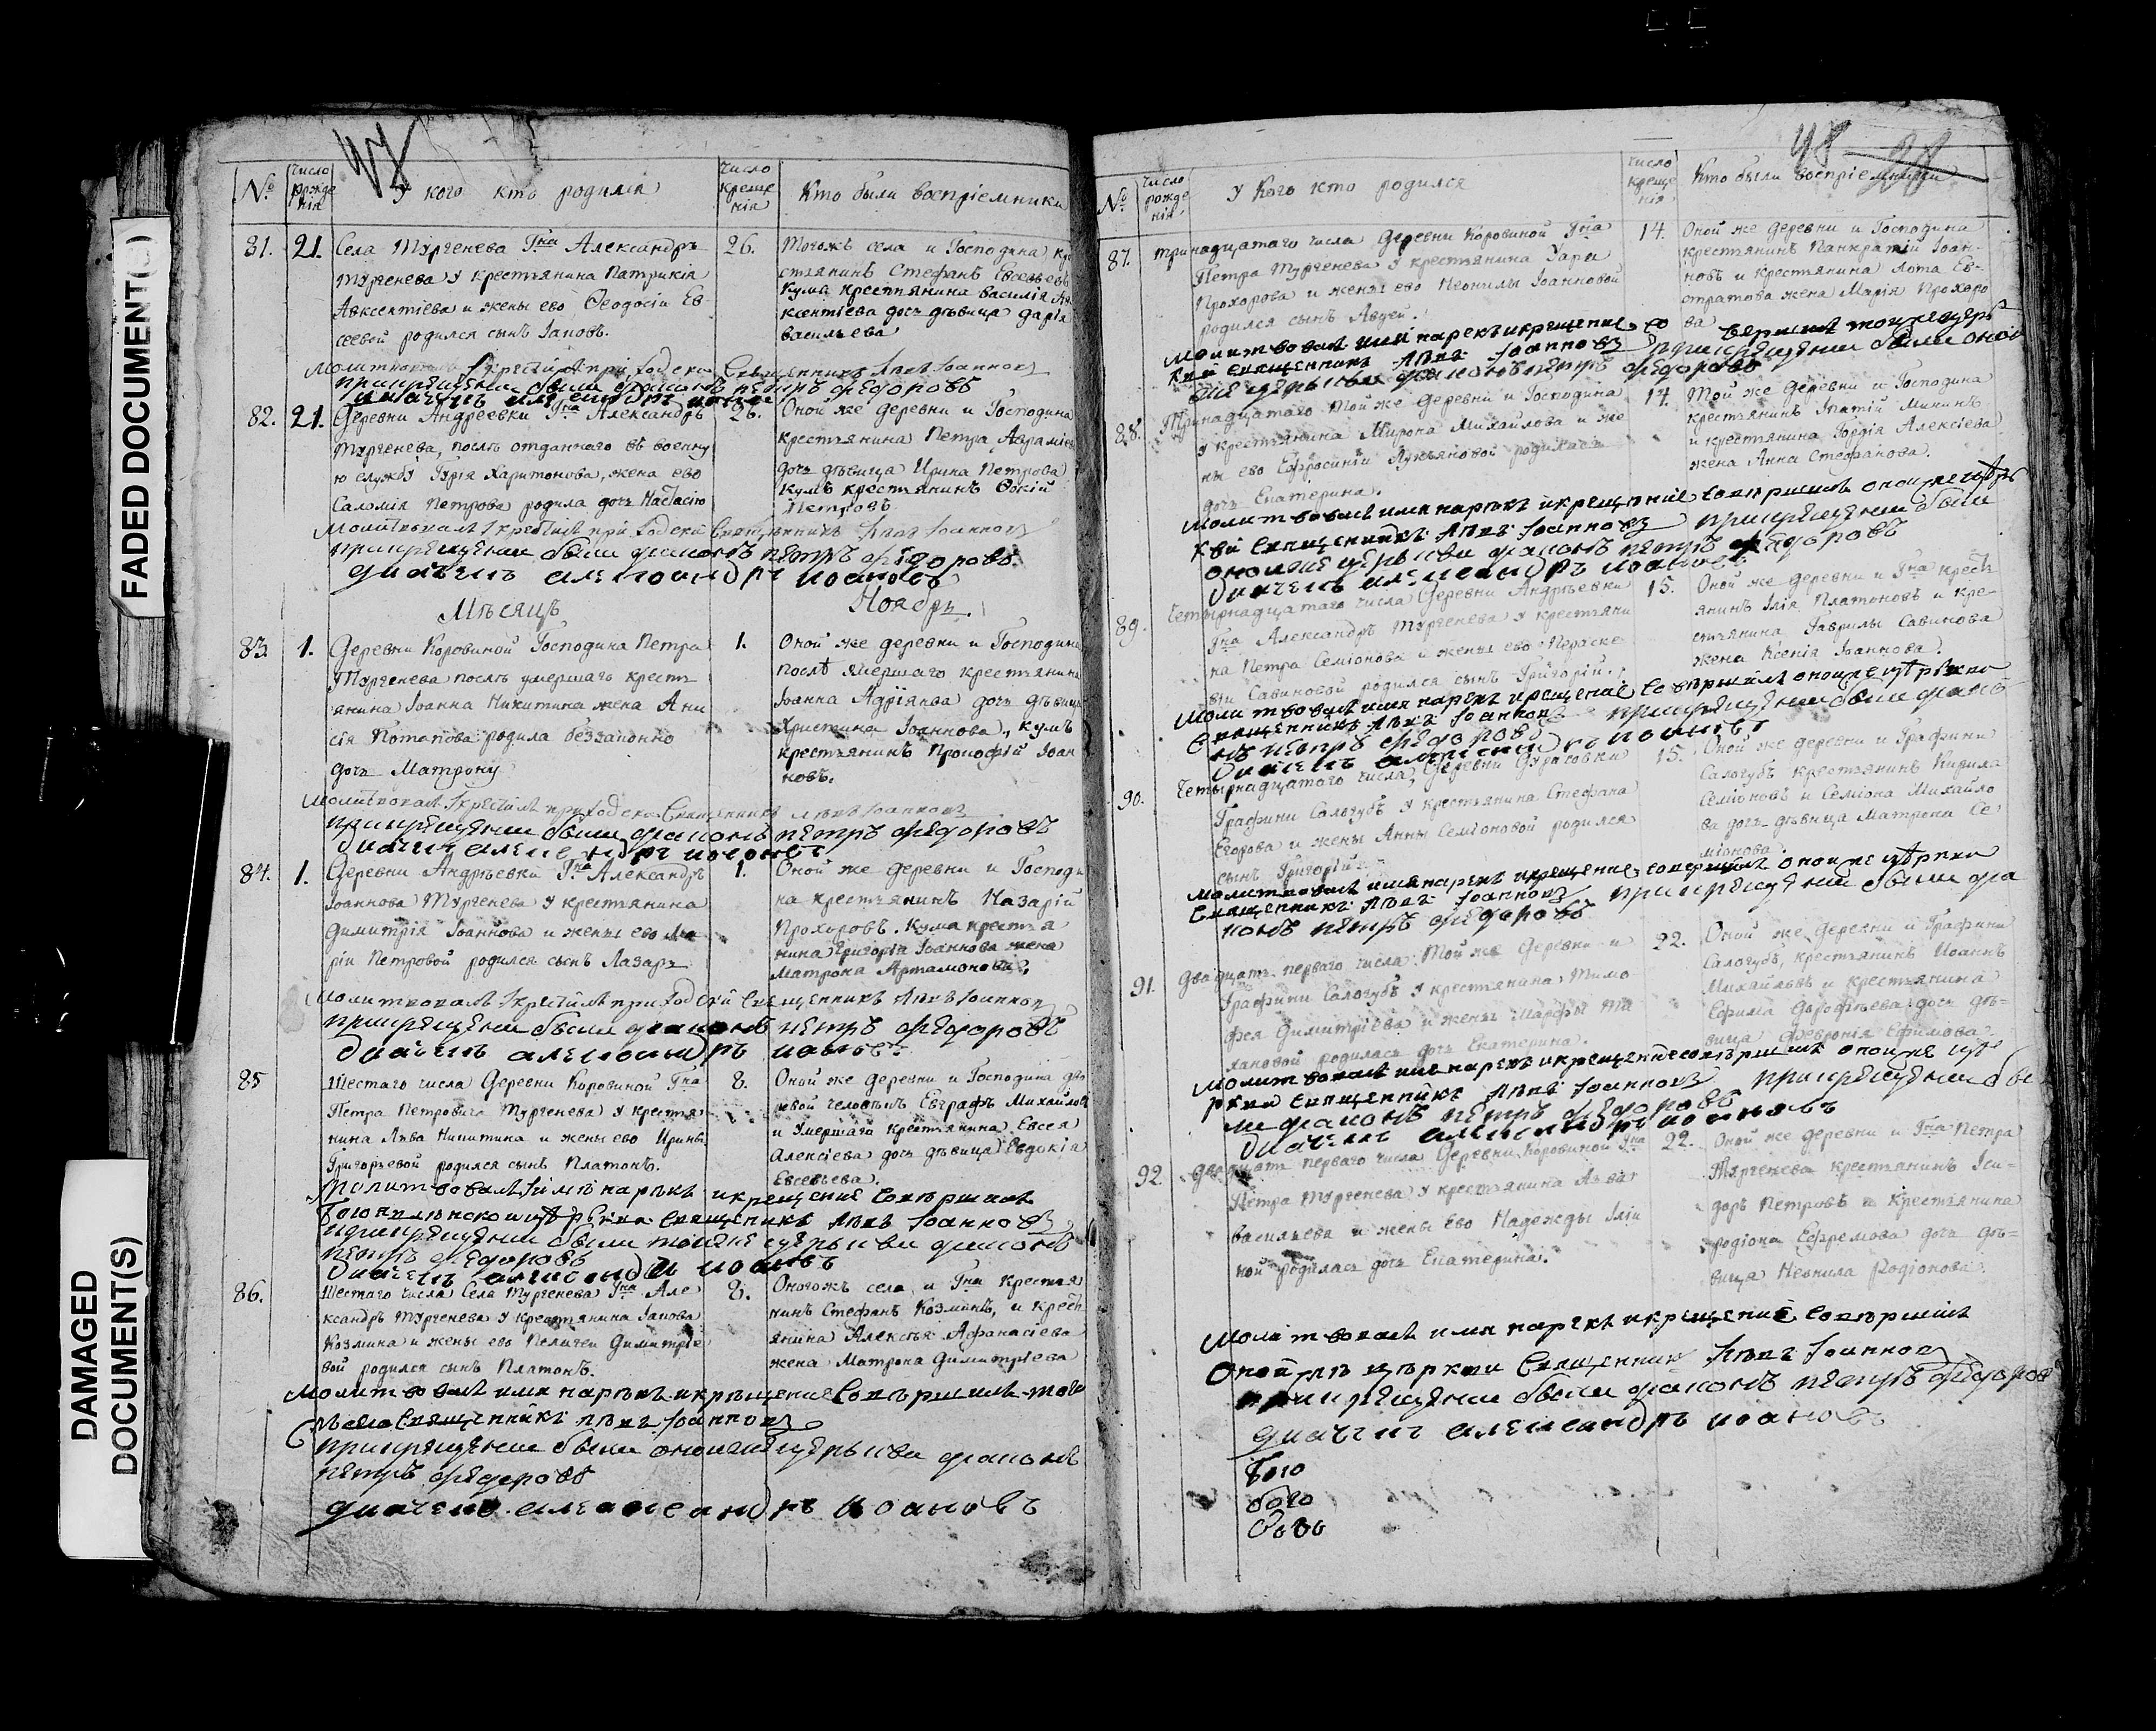 FADED DOCUMENT(S)
DAMAGED
DOCUMENT(S)
47
№
число
рожде
нія
У кого кто родился
число
креще
нія
Кто были воспріемники
81.
21.
Села Тургенева Гна Александръ
Тургенева у крестьянина Патрикія
Авксентіева и жены ево Ѳеодосіи Ев
сеевой родился сынъ Іаковъ.
26.
Тогожъ села и Господина кре
стьянинъ Стефанъ
кума крестьянина Василія Ав
ксентіева дочь дѣвица Дарія
Васильева
Молитвовалъ и крестилъ приходской Священникъ Левъ Іоанновъ
при крещеніи были діаконъ петръ федоровъ
82.
21.
Деревни Андреевки Гна Александръ
Тургенева, послѣ отданнаго въ военну
ю службу Гурія Харитонова, жена ево
Саломія Петрова родила дочь Настасію
26.
Оной же деревни и Господина
крестьянина Петра Авраміева
дочь дѣвица Ирина Петрова
кумъ крестьянинъ Ѳокій
Петровъ
Молитвовалъ и крестилъ приходской Священникъ Левъ Іоанновъ
при крещеніи были діаконъ петръ федоровъ
диаченъ александръ иоановъ
Мѣсяцъ Ноябрь.
83.
1.
Деревни Коровиной Господина Петра
Тургенева послѣ умершаго крестъ
янина Іоанна Никитина жена Ани
сія Потапова родила беззаконно
дочь Матрону
1.
Оной же деревни и Господина
послѣ умершаго крестьянина
Іоанна Адріянова дочь дѣвица
Христина Іоаннова, кумъ
крестьянинъ Прокофій Іоан
новъ.
Молитвовалъ и крестилъ приходской Священникъ Левъ Іоанновъ
при крещеніи были діаконъ петръ федоровъ
диаченъ александръ иоановъ
84.
1.
Деревни Андрѣевки Гна Александръ
Іоаннова Тургенева у крестьянина
Димитрія Іоаннова и жены ево Ма
ріи Петровой родился сынъ Лазарь
1.
Оной же деревни и Господи
на крестьянинъ Назарій
Прохоровъ. Кума крестья
нина Григорія Іоаннова жена
Матрона Артамонова.
Молитвовалъ и крестилъ приходской Священникъ Левъ Іоанновъ
при крещеніи были діаконъ петръ федоровъ
диаченъ александръ иоановъ
85
Шестаго числа Деревни Коровиной Гна
Петра Петровича Тургенева у крестья
нина Льва Никитина и жены ево Ирины
Григорьевой родился сынъ Платонъ.
8.
Оной же деревни и Господина дво
ровой человѣкъ Евграфъ Михайлов
и умершаго крестьянина Евсея
Алексіева дочь дѣвица Евдокія
Евсевьева.
Молитвовалъ имя нарекъ и крещеніе Совершилъ
церкви Священникъ Левъ Іоанновъ
при крещеніи были тойже церькви діаконъ
петръ федоровъ
диаченъ александръ иоановъ
86.
Шестаго числа Села Тургенева Гна Але
ксандръ Тургенева у крестьянина Іакова
Козмина и жены ево Пелагеи Димитріе
вой родился сынъ Платонъ.
8.
Оногожъ села и Гна крестья
нинъ Стефанъ Козминъ, и крестъ
янина Алексѣя Афанасіева
жена Матрона Димитріева
Молитвовалъ имя нарекъ и крещеніе Совершилъ тогожъ
села Священникъ Левъ Іоанновъ
при крещеніи были онойже церькви діаконъ
петръ федоровъ
диаченъ александръ иоановъ
48
№
Число
рожде
нія
У кого кто родился
число
креще
нія
Кто были воспріемники
87.
тринадцатаго числа Деревни Коровиной Гна
Петра Тургенева у крестьянина Уара
Прохорова и жены ево Неонилы Іоанновой
родился сынъ Авдей.
14.
Оной же деревни и Господина
крестьянинъ Панкратій Іоан-
новъ и крестьянина Лота Ев-
стратова жена Марія Прохоро
ва
Молитвовалъ имя нарекъ и крещеніе совершилъ тойже церь
кви священникъ Левъ Іоанновъ при крещеніи были оной
же церькви діаконъ петръ федоровъ
88.
Тринадцатаго Той же Деревни и Господина
у крестьянина Мирона Михайлова и же
ны ево Ефросиніи Лукьяновой родилась
дочь Екатерина.
14.
Той же деревни и Господина
крестьянинъ Ипатій Микинъ
и крестьянина Гордія Алексіева
жена Анна Стефанова.
Молитвовалъ имя нарекъ и крещеніе Совершилъ онойже цер
кви Священникъ Левъ Іоанновъ при крещеніи были
онойже церькви діаконъ петръ федоровъ
диаченъ александръ иоановъ
89.
Четырнадцатаго числа Деревни Андрѣевки
Гна Александръ Тургенева у крестьяни
на Петра Семіонова и жены ево Параске
віи Савиновой родился сынъ Григорій.
15.
Оной же деревни и Гна крестъ
янинъ Ілія Платоновъ и кре-
стьянина Гаврилы Савинова
жена Ксенія Іоаннова.
Молитвовалъ имя нарекъ и крещеніе Совершилъ онойже церкви
Священникъ Левъ Іоанновъ при крещеніи были діако
нъ петръ федоровъ
диаченъ александръ иоановъ
90.
Четырнадцатаго числа, Деревни Дурасовки
Графини Салогубъ у крестьянина Стефана
Егорова и жены Анны Семіоновой родился
сынъ Григорій.
15.
Оной же деревни и Графини
Салогубъ крестьянинъ Кирила
Семіоновъ и Семіона Михайло
ва дочь дѣвица Матрона Се
міонова.
Молитвовалъ имя нарекъ и крещеніе совершилъ онойже церкви
Священникъ Левъ Іоанновъ при крещеніи были діа
конъ петръ федоровъ
91.
Двадцать перваго числа. Той же Деревни и
Графини Салогубъ у крестьянина Тимо
фея Димитріева и жены Марфы
родилась дочь Екатерина.
22.
Оной же деревни и Графини
Салогубъ, крестьянинъ Иоаннъ
Михайловъ и крестьянина
Ефима Дорофѣева дочь дѣ=
вица Февронія Ефимова.
Молитвовалъ имя нарекъ и крещеніе совершилъ онойже це
ркви Священникъ Левъ Іоанновъ при крещеніи бы
ли діаконъ петръ федоровъ
диаченъ александръ иоановъ
92.
двадцать перваго числа Деревни Коровиной Гна
Петра Тургенева у крестьянина Льва
Васильева и жены Ево Надежды Іліи
ной родилась дочь Екатерина.
22.
Оной же деревни и Гна Петра
Тургенева крестьянинъ Іси-
доръ Петровъ и Крестьянина
Родіона Ефремова дочь дѣ=
вица Неонила Родіонова.
Молитвовалъ имя нарекъ и крещеніе Совершилъ
Онойже церкви Священникъ Левъ Іоанновъ
при крещеніи были діаконъ петръ федоров
диаченъ александръ иоановъ